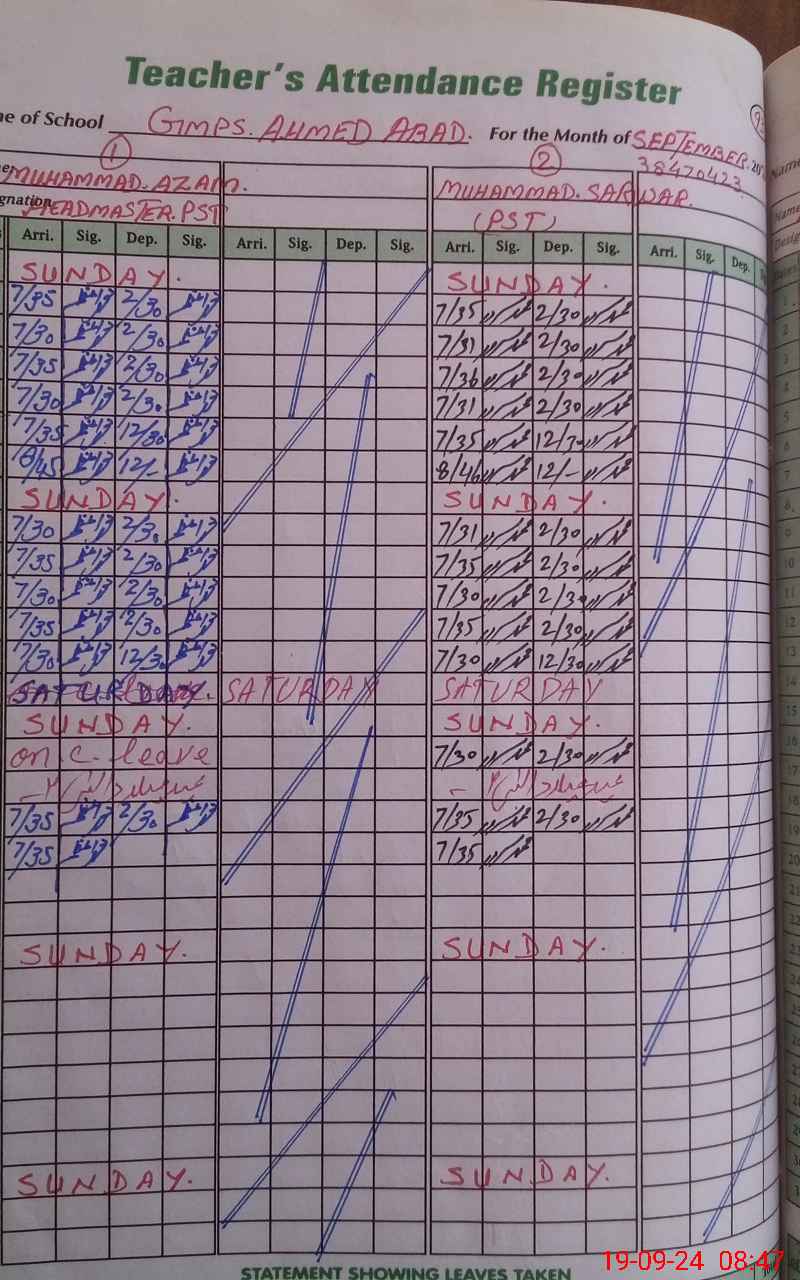 Teacher's Attendance Register
ne of School GMPS. AHMED ABAD. For the Month of SEPTEMBER. 20
① ② 38470423
MUHAMMAD. AZAM. MUHAMMAD. SARWAR.
gnation HEADMASTER. PST (PST)
Arri. Sig. Dep. Sig. Arri. Sig. Dep. Sig. Arri. Sig. Dep. Sig. Arri. Sig. Dep.
SUNDAY. SUNDAY.
7/35 2/30 7/35 2/30
7/30 2/30 7/31 2/30
7/35 2/30 7/36 2/30
7/30 2/30 7/31 2/30
7/35 12/30 7/35 12/30
8/45 12/- 8/46 12/-
SUNDAY. SUNDAY.
7/30 2/30 7/31 2/30
7/35 2/30 7/35 2/30
7/30 2/30 7/30 2/30
7/35 2/30 7/35 2/30
7/30 12/30 7/30 12/30
SATURDAY. SATURDAY SATURDAY
SUNDAY. SUNDAY.
on c. leave 7/30 2/30
7/35 2/30 7/35 2/30
7/35 7/35
SUNDAY. SUNDAY.
SUNDAY. SUNDAY.
STATEMENT SHOWING LEAVES TAKEN
19-09-24 08:47